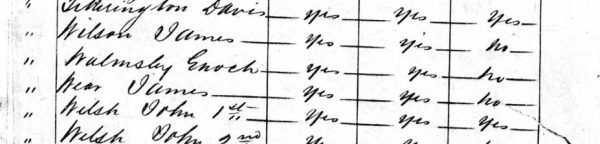 " Titherington Davis — Yes — Yes — Yes
" Wilson James — Yes — Yes — No —
" Walmsley Enoch — Yes — Yes — No —
" Wear James — Yes — Yes — No —
" Welsh John 1st — Yes — Yes — Yes —
" Welsh John 2nd — Yes